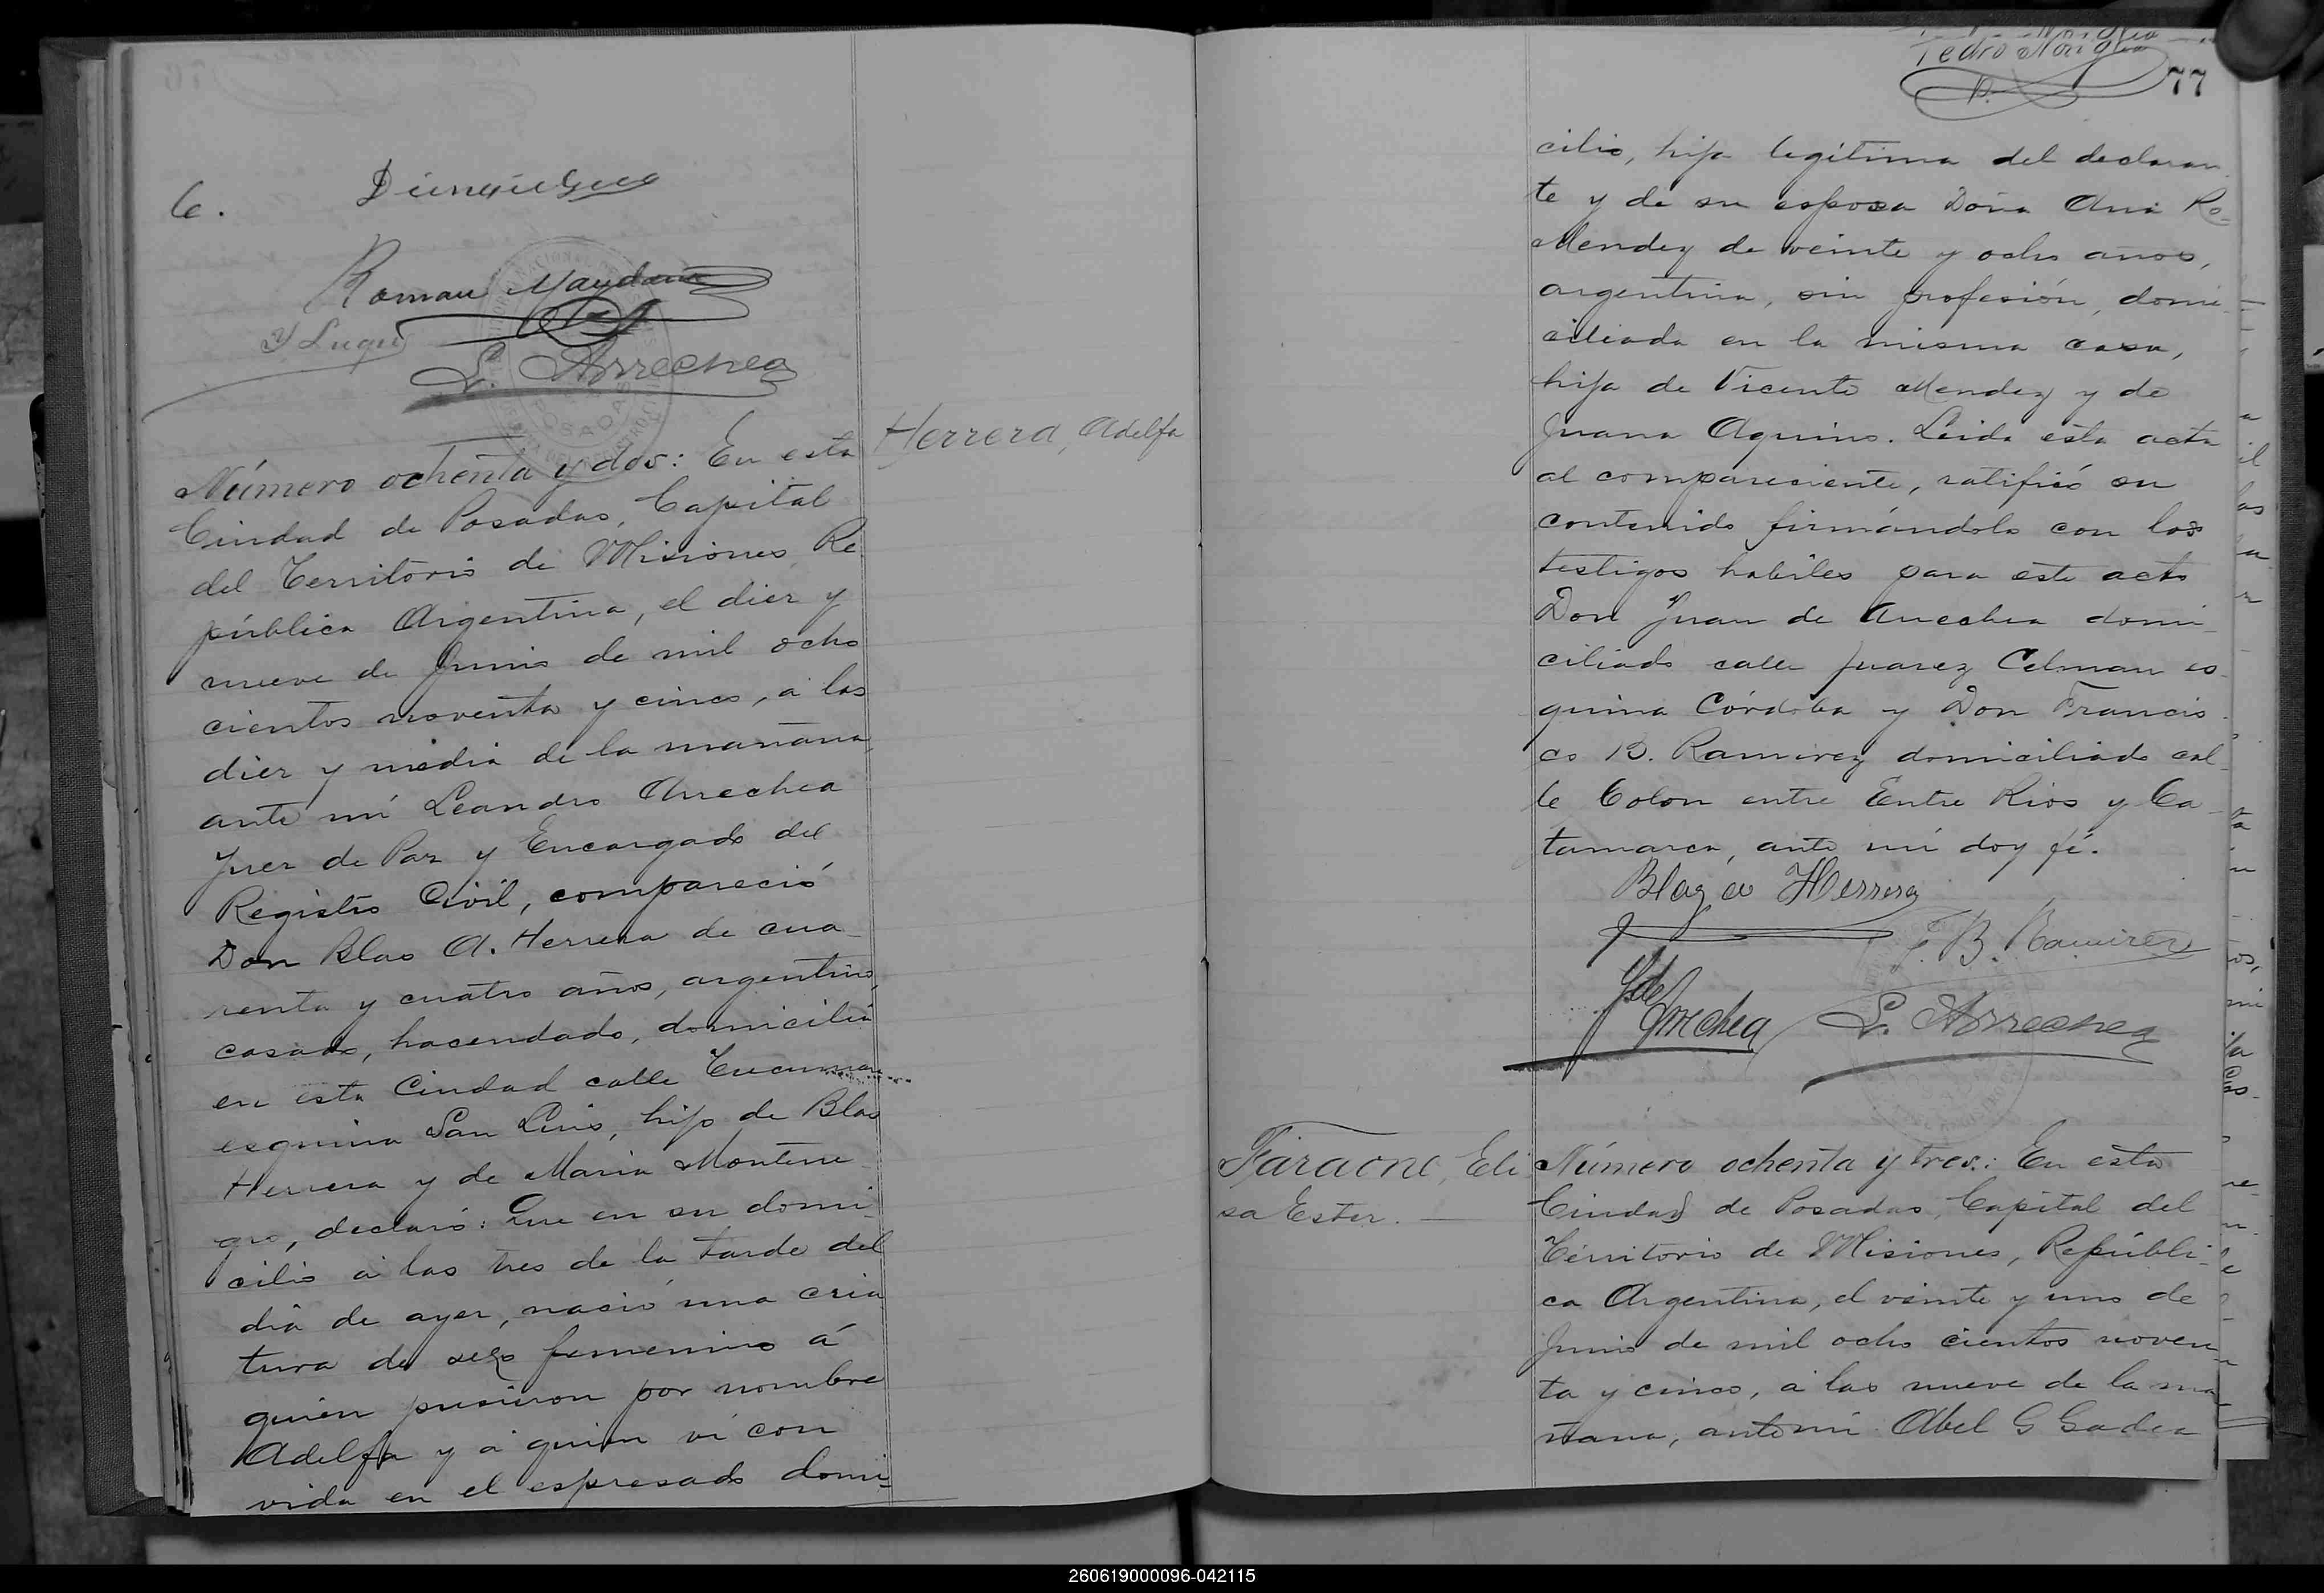 6.
Roman Maydana
y Luque
L. Arrechea
Herrera, Adelfa
Número ochenta y dos: En esta
Ciudad de Posadas, Capital
del Territorio de Misiones Re
pública Argentina, el diez y
nueve de Junio de mil ocho
cientos noventa y cinco, á las
diez y media de la mañana,
ante mí Leandro Arrechea
Juez de Paz y Encargado del
Registro Civil, compareció
Don Blas A. Herrera de cua-
renta y cuatro años, argentino,
casado, hacendado, domicilia
en esta Ciudad calle Tucuman
esquina San Luis, hijo de Blas
Herrera y de Maria Montene
gro, declaró: Que en su domi-
cilio á las tres de la tarde del
dia de ayer, nació una cria
tura de sexo femenino á
quien pusieron por nombre
Adelfa y á quien ví con
vida en el espresado domi-
77
cilio, hija legítima del declaran
te y de su esposa Doña Ana Ro-
Mendez de veinte y ocho años,
argentina, sin profesión, domi-
ciliada en la misma casa,
hija de Vicente Mendez y de
Juana Aquino. Leida esta acta
al compareciente, ratificó su
contenido firmándola con los
testigos habiles para este acto
Don Juan de Arrechea domi-
ciliado calle Juarez Celman es-
quina Córdoba y Don Francis-
co B. Ramirez domiciliado cal-
le Colon entre Entre Rios y Ca-
tamarca, ante mí doy fé.
Blaz A Herrera
F. B. Ramirez
J de Arrechea
L. Arrechea
Faraone, Eli
sa Ester.
Número ochenta y tres: En esta
Ciudad de Posadas, Capital del
Territorio de Misiones, Repúbli-
ca Argentina, el veinte y uno de
Junio de mil ocho cientos noven-
ta y cinco, á las nueve de la ma
ñana, ante mí Abel G Gadea
260619000096-042115